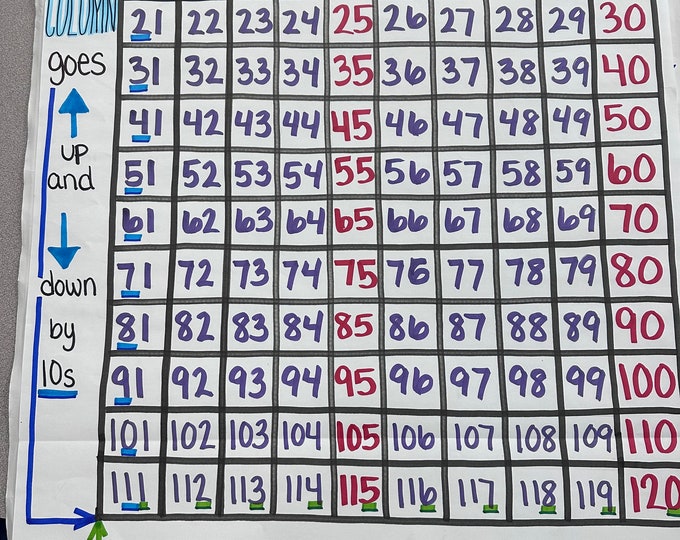 COLUMN
goes
up
and
down
by
10s
21 22 23 24 25 26 27 28 29 30
31 32 33 34 35 36 37 38 39 40
41 42 43 44 45 46 47 48 49 50
51 52 53 54 55 56 57 58 59 60
61 62 63 64 65 66 67 68 69 70
71 72 73 74 75 76 77 78 79 80
81 82 83 84 85 86 87 88 89 90
91 92 93 94 95 96 97 98 99 100
101 102 103 104 105 106 107 108 109 110
111 112 113 114 115 116 117 118 119 120